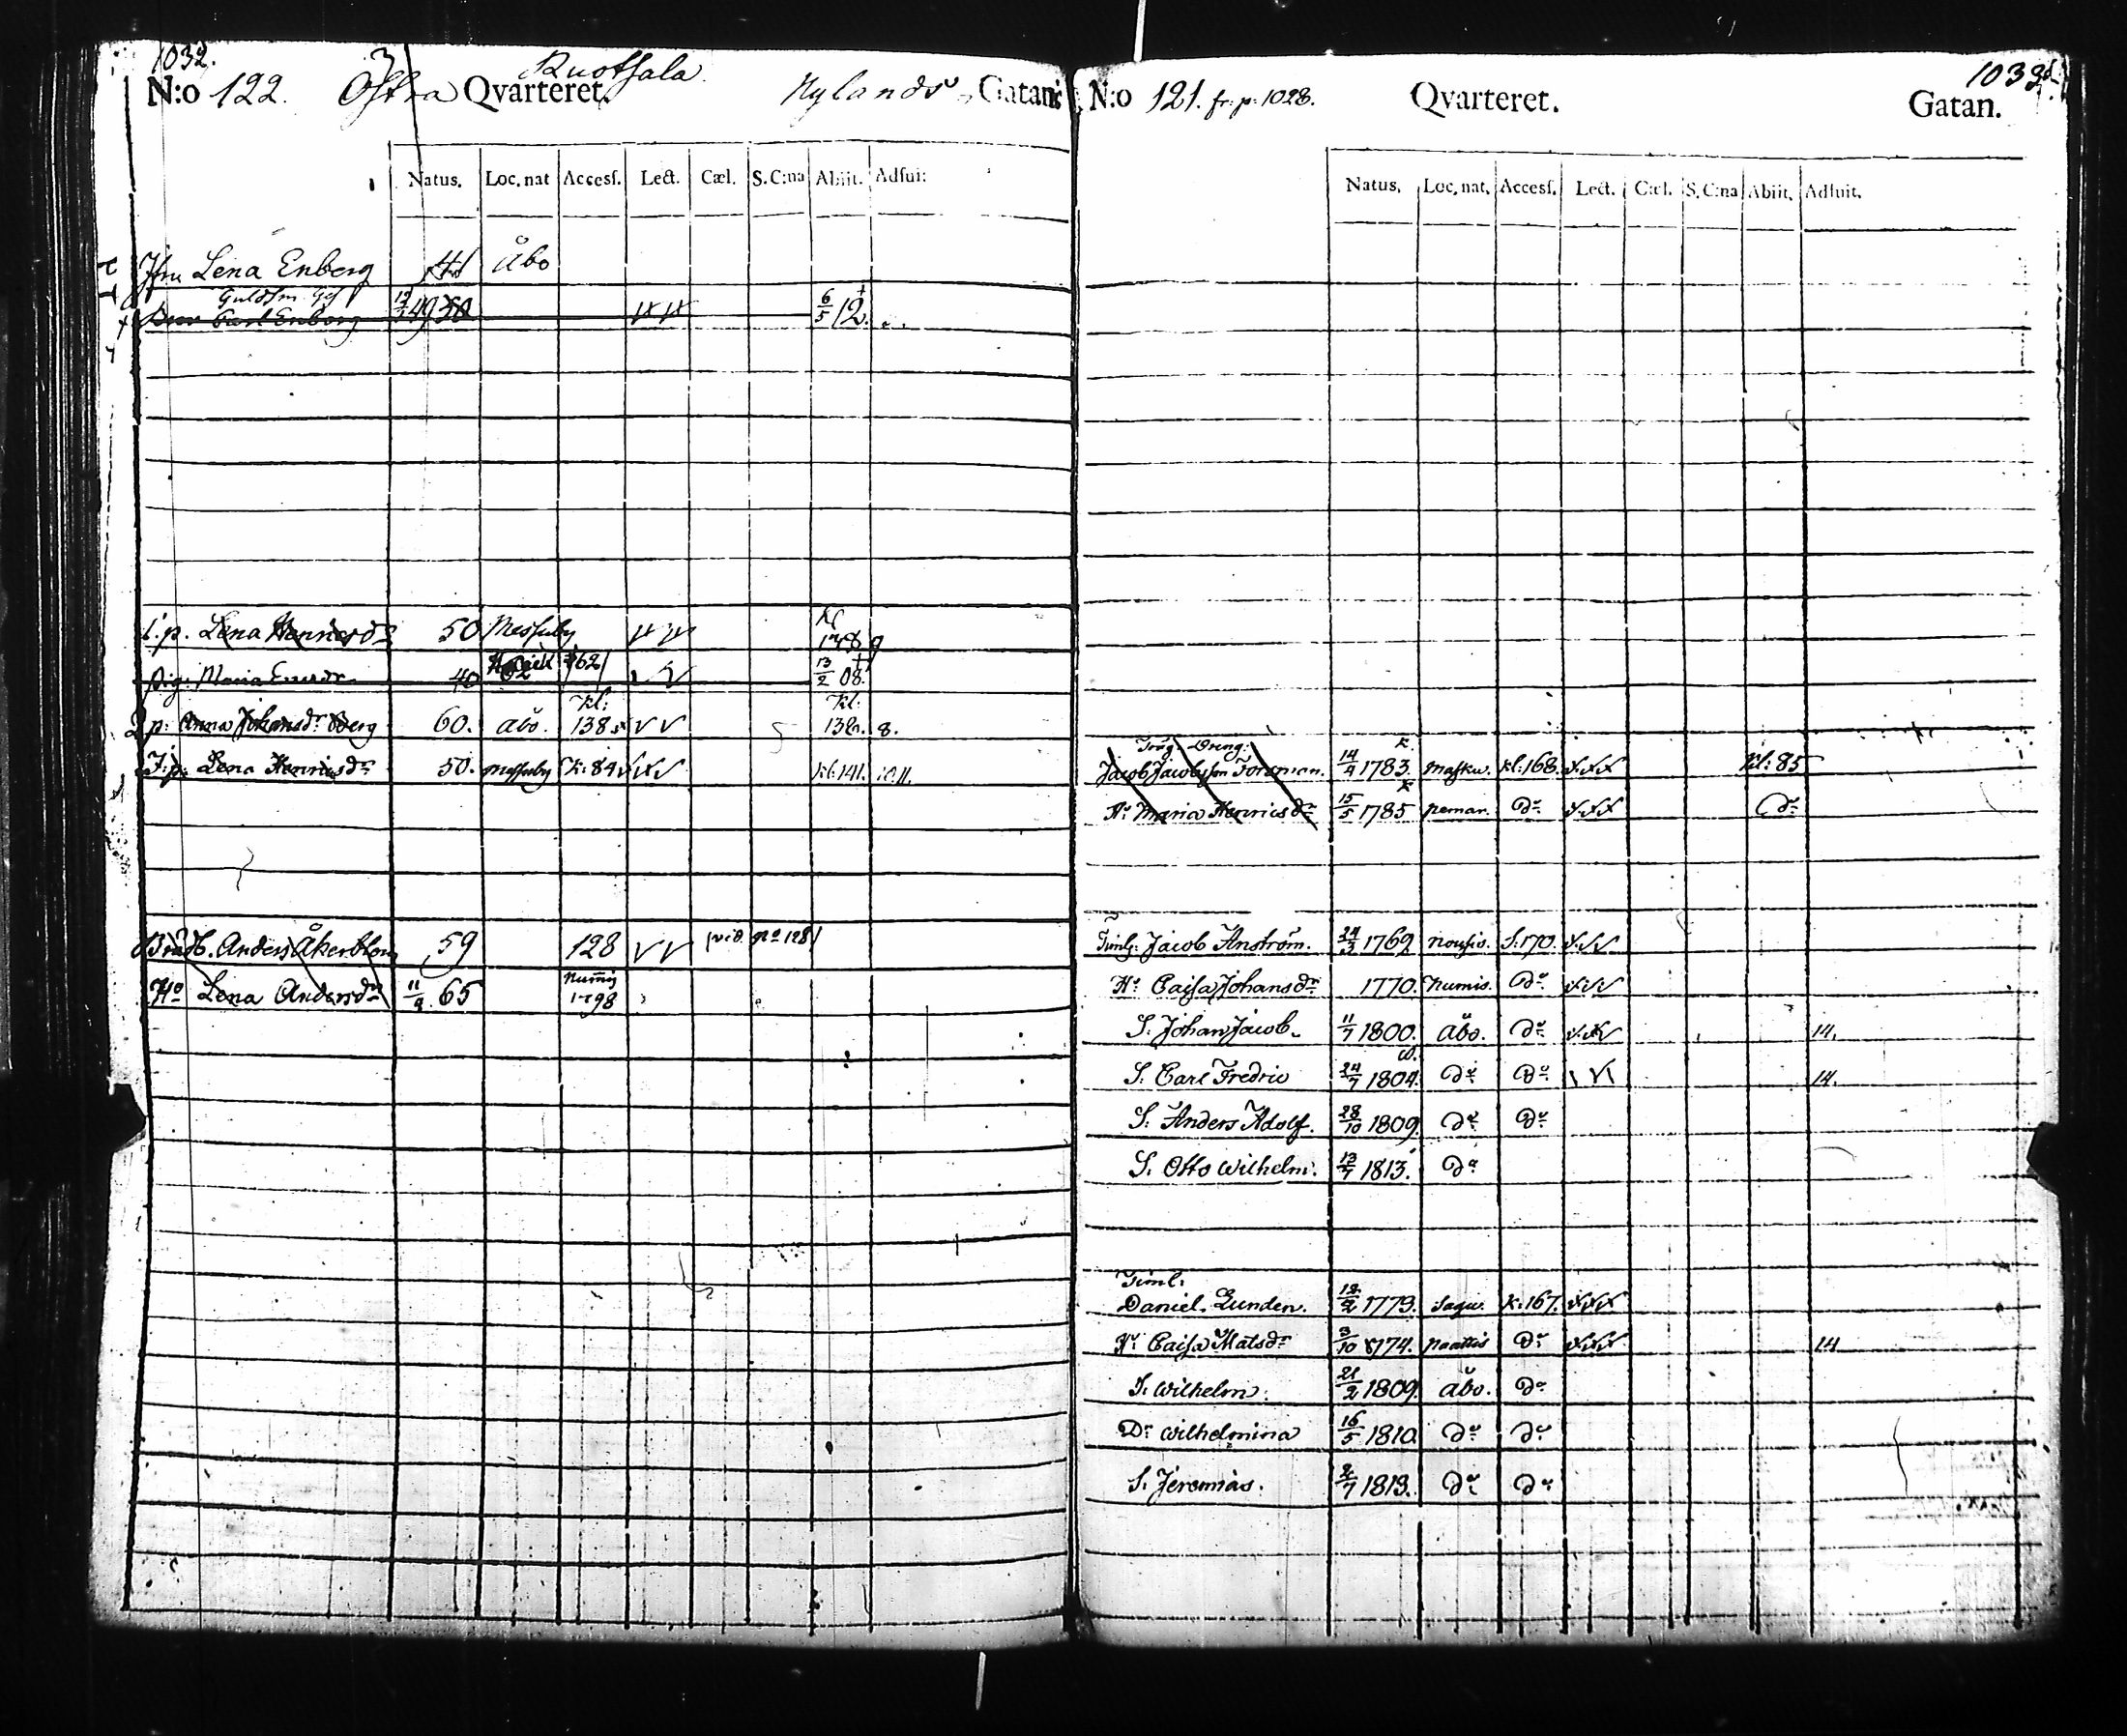 1032.
N:o 122. Östra Qvarteret. Ruotsala Nylands Gatan:
Natus. Loc. nat Access. Lect. Cæl. S. C:na Abiit. Adfui:
Jfru Lena Enberg Åbo
Guldsm. Ges
Carl Enberg 49 6/5 12.
i.p. Lena Henricsdr 50 Messuby Kl 148 9
pig. Maria 40 162 13/2 08
p: Anna Johansdr Berg 60. Åbo. Kl: 138 Kl. 132. 8.
I:p: Lena Henricsdr 50. Messuby K: 84 Kl. 141. 10.11.
Anders Åkerblom 59 128 vid. No 128
Ho Lena Andersdr 11/9 65 Numis 1798
1033.
N:o 121. fr. p. 1028. Qvarteret. Gatan.
Natus. Loc. nat. Access. Lect. Cæl. S. C:na Abiit. Adfuit.
Dreng:
Jacob Jacobsson Forsman. 14/4 1783. Masku. Kl:168. Kl: 85
Hu Maria Henricsdr 15/5 1785 Pemar. Do Do
Timb: Jacob Anström. 1769 Nousis. S:170.
Hu Caisa Johansdr 1770. Numis. Do
S. Johan Jacob. 11/7 1800. Åbo. Do 14.
S. Carl Fredric 24/7 1804. Do Do 14.
S. Anders Adolf. 28/10 1809. Do Do
S. Otto Wilhelm. 13/7 1813. Do
Timl.
Daniel Lunden. 12/2 1779. Sagu. K:167.
Hu Caisa Matsdr 3/10 1774. Paattis Do 14
S. Wilhelm. 21/2 1809. Åbo. Do
Dr Wilhelmina 16/5 1810 Do Do
S. Jeremias. 2/7 1813. Do Do